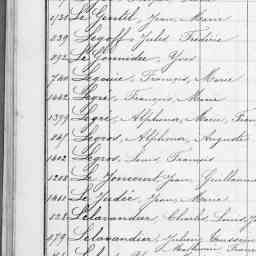 1730 Le Gentil, Jean, Marie
839 Legoff, Jules Frédéric
892 Le Gonnidec, Yves
740 Legouic, François, Marie
1442 Legré, François, Marie
1399 Legré, Alphonse, Marie, Fran
847 Legros, Alphonse, Auguste
1402 Legros, Louis, François
1208 Le Joncourt, Jean, Guillaume
1461 Le Judée, Jean, Marie
828 Lelavander Charles, Louis, J
479 Lelavandier, Julien, Toussaint